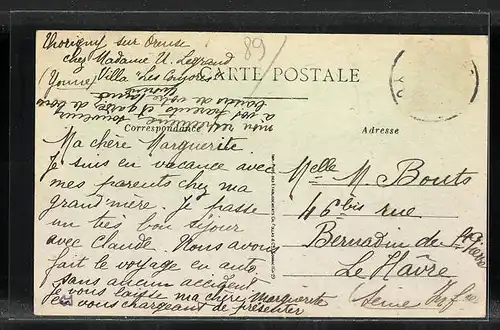 Thorigny sur Oreuse
chez Madame U. Legrand
(Yonne) Villa "Les
89
CARTE POSTALE
Correspondance
Adresse
Ma chère Marguerite
Je suis en vacance avec
mes parents chez ma
grand'mère. Je passe
un très bon séjour
avec Claude. Nous avons
fait le voyage en auto
sans aucun accident
Je vous laisse ma chère Marguerite
en vous chargeant de présenter
à vos parents et
Melle M. Bouts
46bis rue
Bernadin de St Pierre
Le Hâvre
Seine Infre